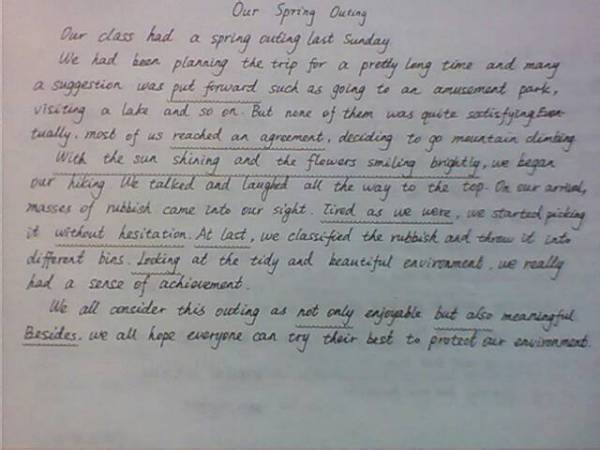 Our Spring Outing
Our class had a spring outing last Sunday
We had been planning the trip for a pretty long time and many
a suggestion was put forward such as going to an amusement park,
visiting a lake and so on. But none of them was quite satisfying. Even-
tually, most of us reached an agreement, deciding to go mountain climbing.
With the sun shining and the flowers smiling brightly, we began
our hiking. We talked and laughed all the way to the top. On our arrival,
masses of rubbish came into our sight. Tired as we were, we started picking
it without hesitation. At last, we classified the rubbish and threw it into
different bins. Looking at the tidy and beautiful environment, we really
had a sense of achievement.
We all consider this outing as not only enjoyable but also meaningful
Besides, we all hope everyone can try their best to protect our environment.